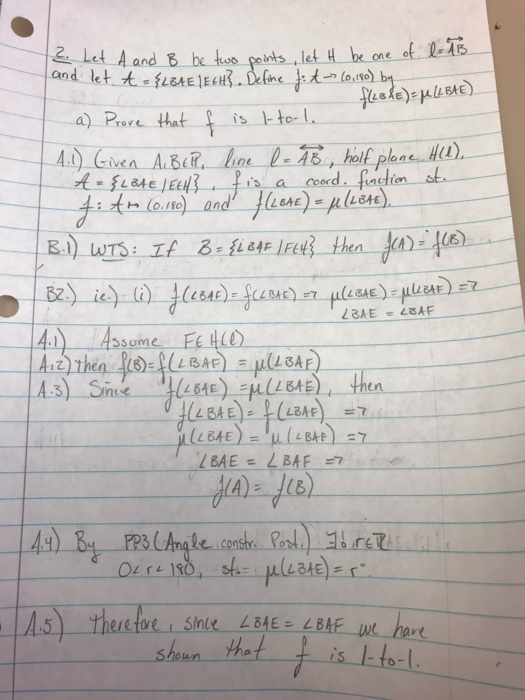 2. Let A and B be two points, let H be one of l=AB
and let A = {∠BAE|E∈H}. Define f: A → (0,180) by
f(∠BAE)=μ(∠BAE)
a) Prove that f is 1-to-1.
A.1) Given A,B∈P, line l = AB, half plane H(l),
A = {∠BAE|E∈H}, f is a coord. function st.
f: A ↦ (0,180) and f(∠BAE) = μ(∠BAE).
B.1) WTS: If B = {∠BAF|F∈H} then f(A) = f(B)
B2.) ie.) (i) f(∠BAF) = f(∠BAE) => μ(∠BAE) = μ(∠BAF) =>
∠BAE = ∠BAF
A.1) Assume F∈H(l)
A.2) then f(B)=f(∠BAF) = μ(∠BAF)
A.3) Since f(∠BAE) = μ(∠BAE), then
f(∠BAE) = f(∠BAF) =>
μ(∠BAE) = μ(∠BAF) =>
∠BAE = ∠BAF =>
f(A) = f(B)
A.4) By PP3 (Angle constr. Post.) ∃ r∈R
0<r<180, st. μ(∠BAE) = r°.
A.5) Therefore, since ∠BAE = ∠BAF we have
shown that f is 1-to-1.